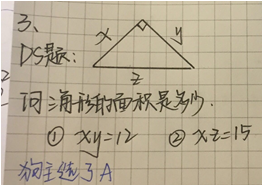 3、
x y
DS题:
z
问三角形的面积是多少.
① xy=12 ② xz=15
狗主选了A